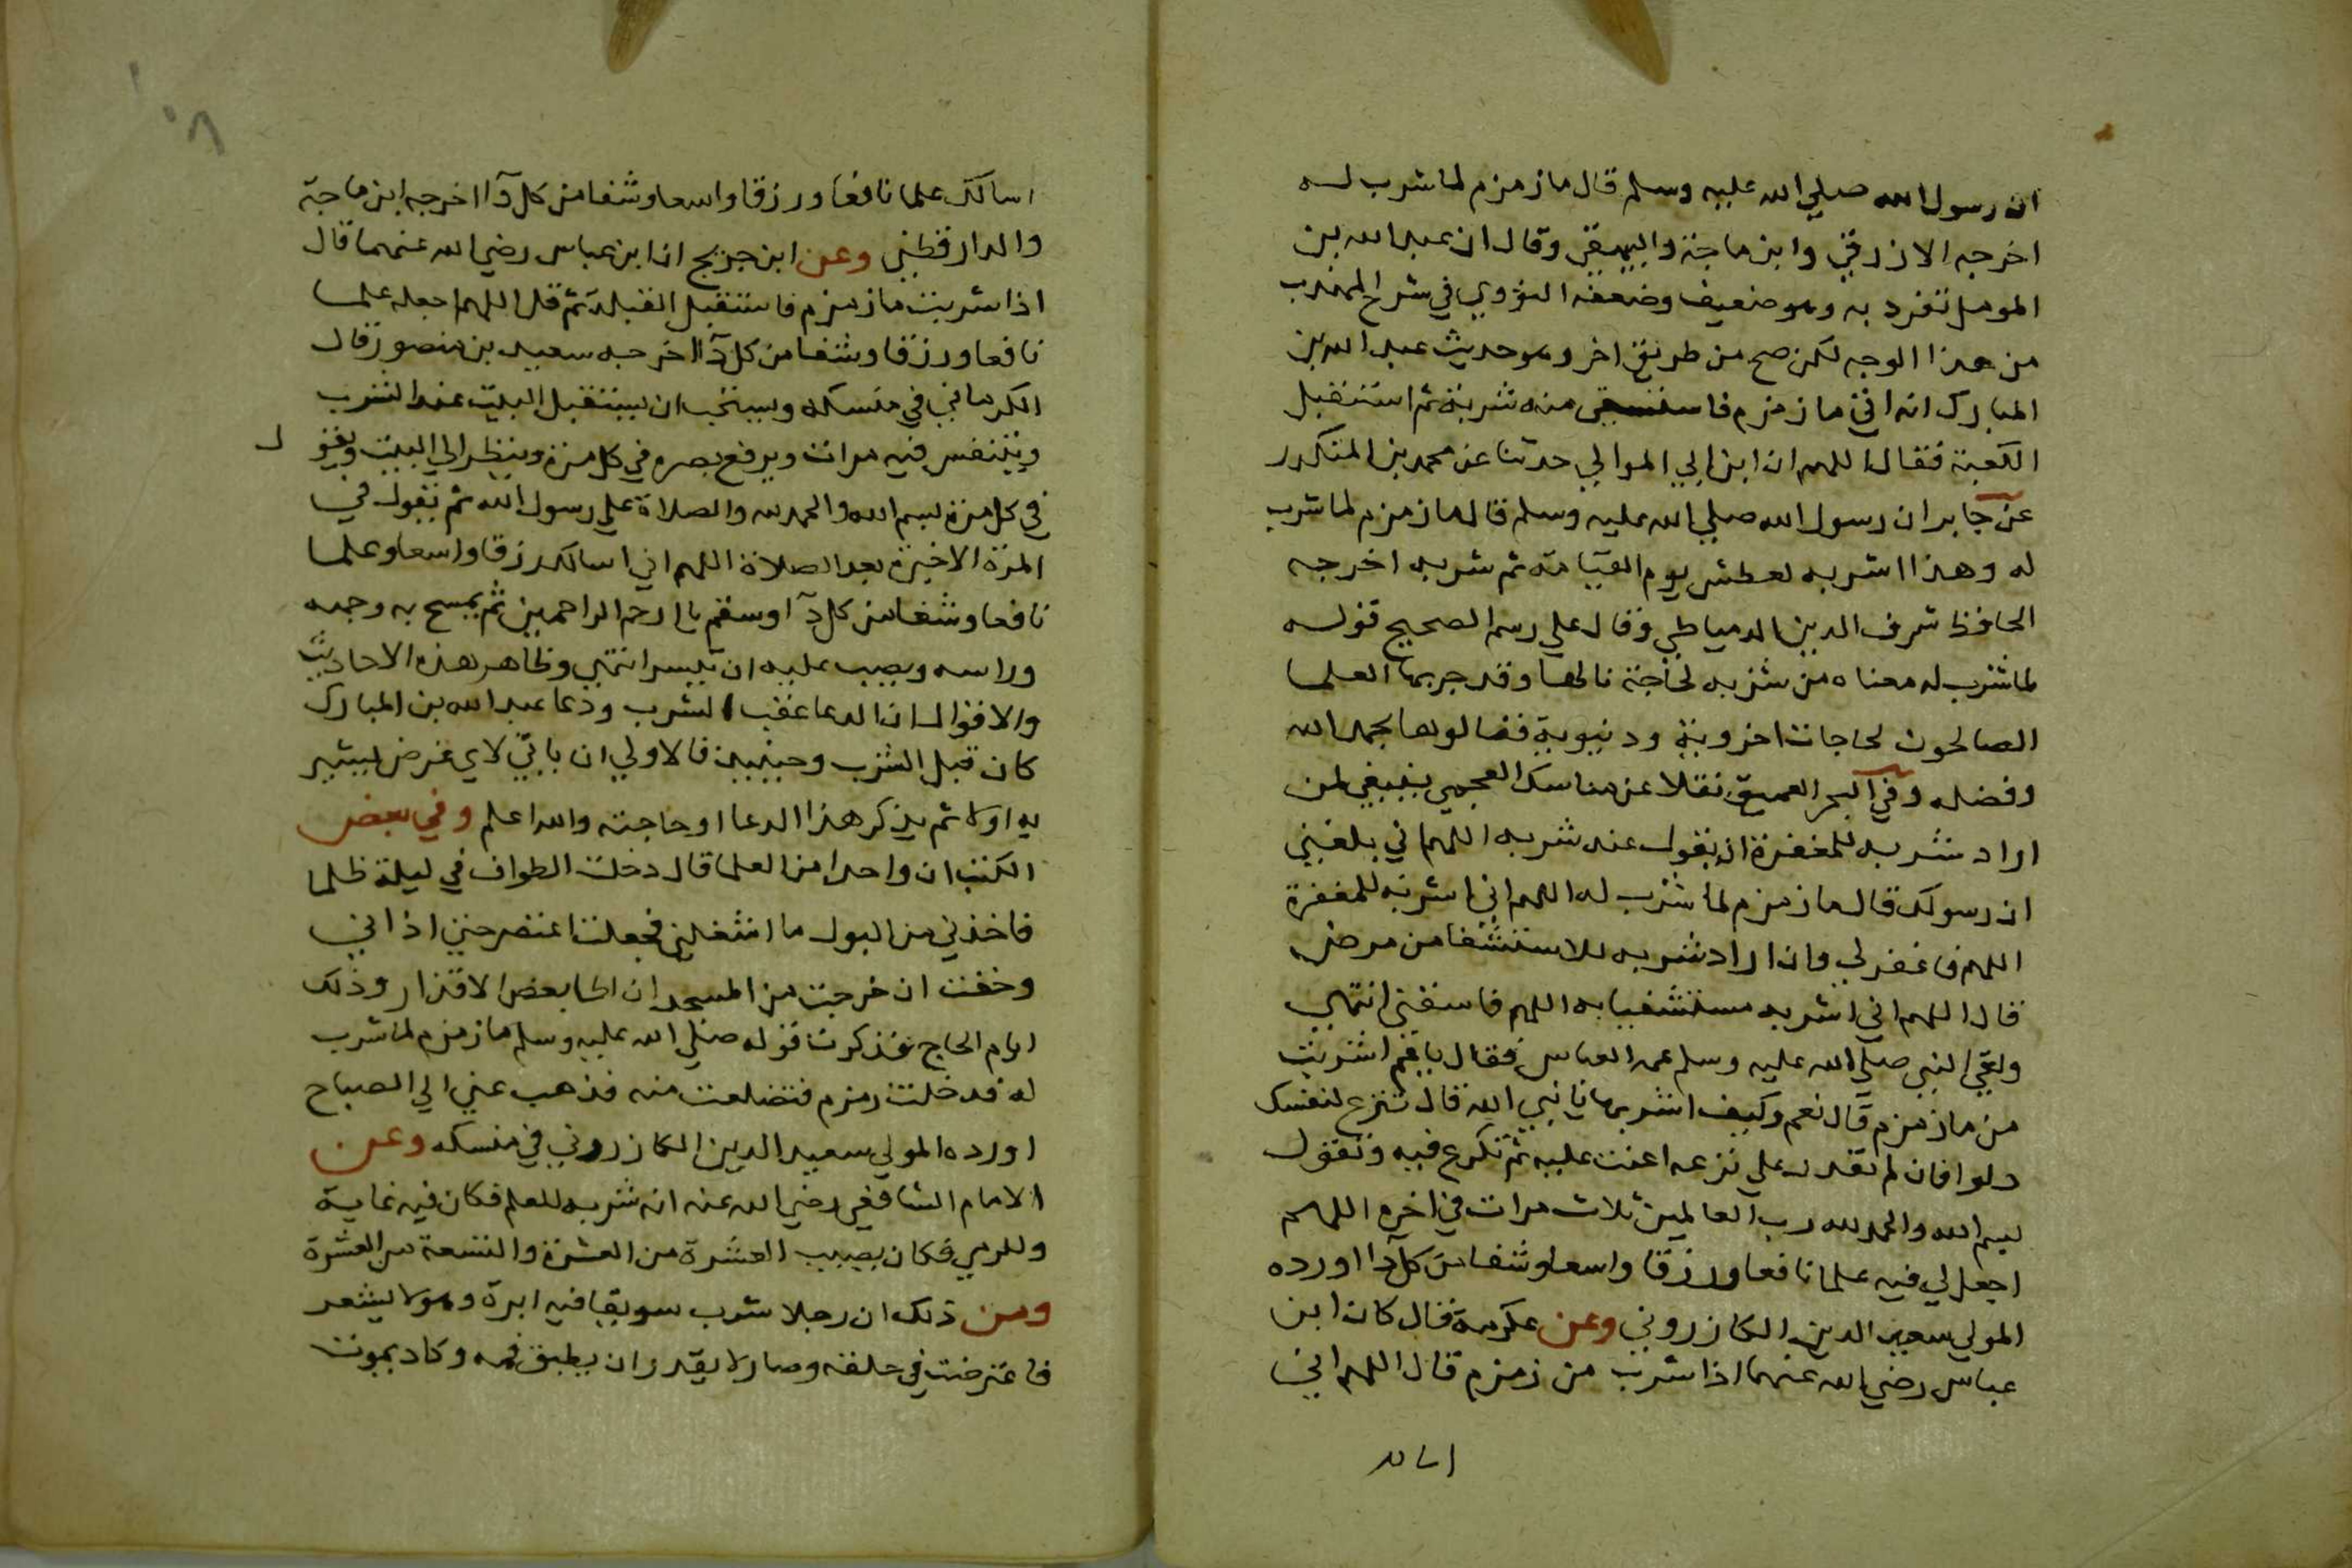 ان رسول الله صلي الله عليه وسلم قال ما زمزم لما شرب له
اخرجه الازرقي وابن ماجة والبيهقي وقال ان عبد الله بن
المومل تفرد به وهو ضعيف وضعفه النووي في شرح المهذب
من هذا الوجه لكن صح من طريق اخر وهو حديث عبد الله بن
المبارك انه اتي ما زمزم فاستسقي منه شربة ثم استقبل
الكعبة فقال اللهم ان ابن ابي الموالي حدثنا عن محمد بن المنكدر
عن جابر ان رسول الله صلي الله عليه وسلم قال ما زمزم لما شرب
له وهذا اشربه لعطش يوم القيامة ثم شربه اخرجه
الحافظ شرف الدين الدمياطي وقال علي رسم الصحيح قوله
لما شرب له معناه من شربه لحاجة نالها وقد جربها العلما
الصالحون لحاجات اخروية ودنيوية فنالوها بحمد الله
وفضله وفي البحر العميق نقلا عن مناسك العجمي ينبغي لمن
اراد شربه للمغفرة ان يقول عند شربه اللهم اني بلغني
ان رسولك قال ما زمزم لما شرب له اللهم اني اشربه للمغفرة
اللهم فاغفر لي وان اراد شربه للاستشفا من مرض
قال اللهم اني اشربه مستشفيا به اللهم فاشفني انتهي
ولقي النبي صلي الله عليه وسلم عمه العباس فقال ياعم اشربت
من ما زمزم قال نعم وكيف اشربها يا نبي الله قال تنزع لنفسك
دلوا فان لم تقدر علي نزعه اعنت عليه ثم تكرع فيه وتقول
بسم الله والحمد لله رب العالمين ثلاث مرات في اخره اللهم
اجعل لي فيه علما نافعا ورزقا واسعا وشفا من كل دآا اورده
المولي سعيد الدين الكازروني وعن عكرمة قال كان ابن
عباس رضي الله عنهما اذا شرب من زمزم قال اللهم اني
اسالك علما نافعا ورزقا واسعا وشفا من كل دآا اخرجه ابن ماجة
والدارقطني وعن ابن جريج ان ابن عباس رضي الله عنهما قال
اذا شربت ما زمزم فاستقبل القبلة ثم قل اللهم اجعله علما
نافعا ورزقا وشفا من كل دآا اخرجه سعيد بن منصور قال
الكرماني في منسكه ويستحب ان يستقبل البيت عند الشرب
ويتنفس فيه مرات ويرفع بصره في كل مرة وينظر الي البيت ويقول
في كل مرة بسم الله والحمد لله والصلاة علي رسول الله ثم يقول في
المرة الاخيرة بعد الصلاة اللهم اني اسالك رزقا واسعا وعلما
نافعا وشفا من كل دآ وسقم يا ارحم الراحمين ثم يمسح به وجهه
وراسه ويصب عليه ان تيسر انتهي وظاهر هذه الاحاديث
والاقوال ان الدعا عقب الشرب ودعا عبد الله بن المبارك
كان قبل الشرب وحينيذ فالاولي ان ياتي لاي غرض يشير
به اولا ثم يذكر هذا الدعا او حاجته والله اعلم وفي بعض
الكتب ان واحدا من العلما قال دخلت الطواف في ليلة ظلما
فاخذني من البول ما اشغلني فجعلت اعتصر حتي اذاني
وخفت ان خرجت من المسجد ان اطا بعض الاقذار وذلك
ايام الحاج فذكرت قوله صلي الله عليه وسلم ما زمزم لما شرب
له فدخلت زمزم فتضلعت منه فذهب عني الي الصباح
اورده المولي سعيد الدين الكازروني في منسكه وعن
الامام الشافعي رضي الله عنه انه شربه للعلم فكان فيه غاية
وللرمي فكان يصيب العشرة من العشرة والتسعة من العشرة
ومن ذلك ان رجلا شرب سويقا فيه ابرة وهو لا يشعر
فاعترضت في حلقه وصار لا يقدر ان يطبق فمه وكاد يموت